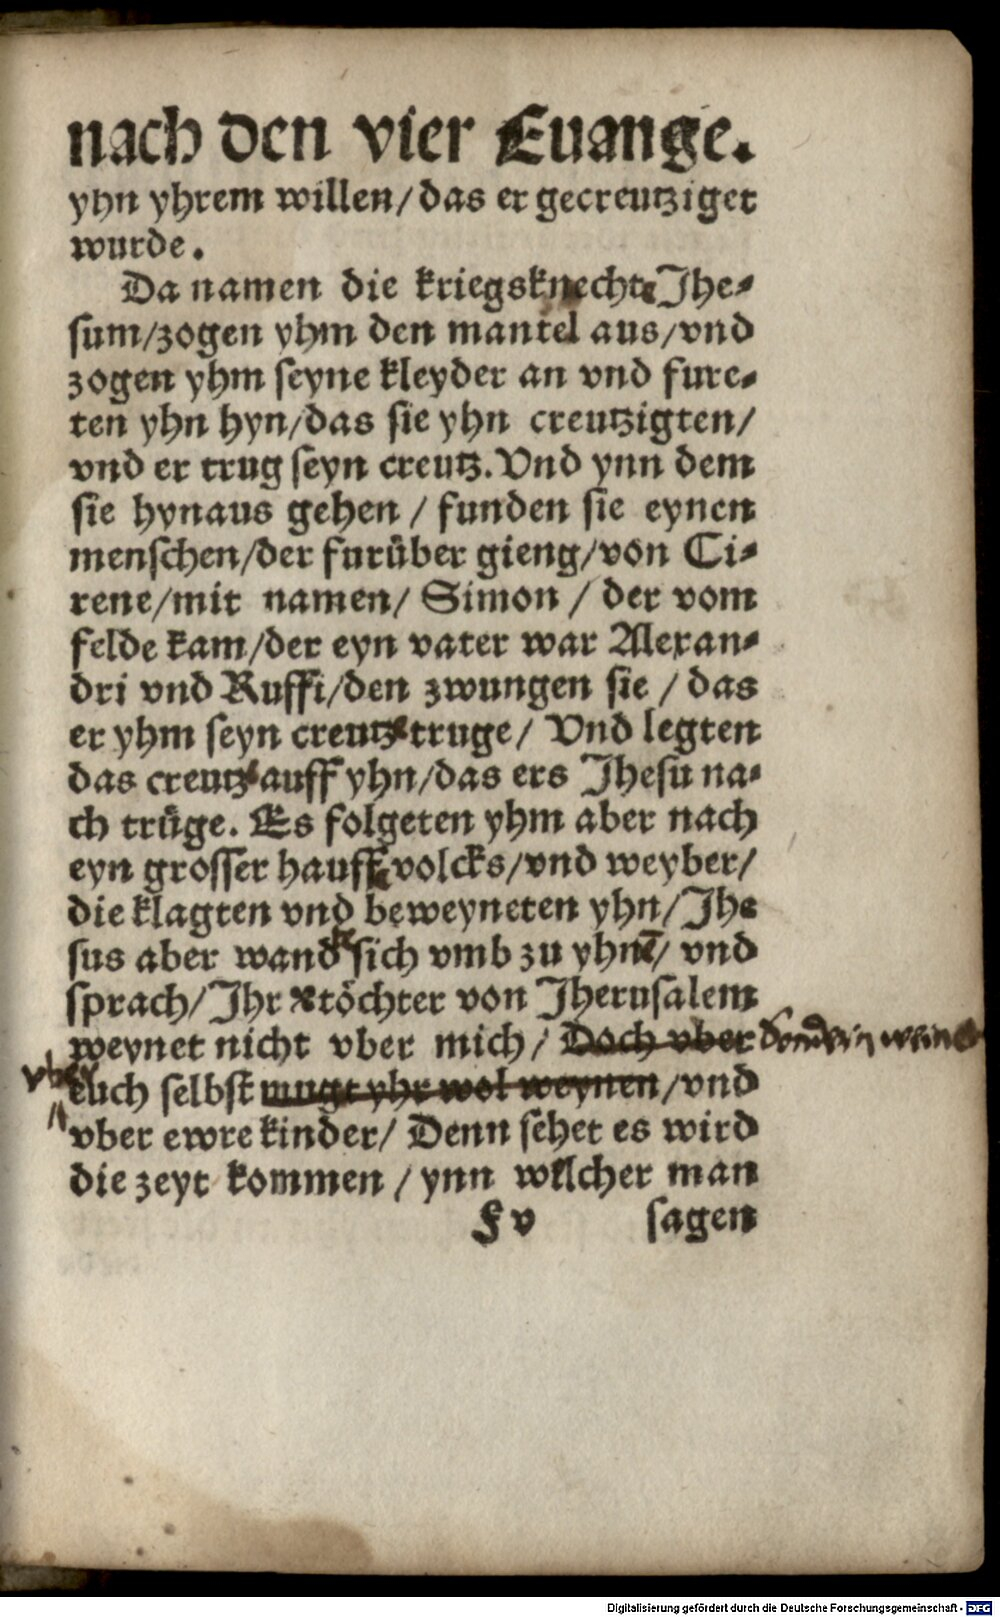 nach den vier Euange.
yhn yhrem willen/das er gecreutziget
wurde.
Da namen die kriegsknechte Jhe-
sum/zogen yhm den mantel aus/vnd
zogen yhm seyne kleyder an vnd fure-
ten yhn hyn/das sie yhn creutzigten/
vnd er trug seyn creutz. Vnd ynn dem
sie hynaus gehen / funden sie eynen
menschen/der furüber gieng/von Ci-
rene/mit namen/ Simon / der vom
felde kam/der eyn vater war Alexan-
dri vnd Ruffi/den zwungen sie / das
er yhm seyn creutz truge/ Vnd legten
das creutz auff yhn/das ers Jhesu na-
ch trüge. Es folgeten yhm aber nach
eyn grosser hauff volcks/vnd weyber/
die klagten vnd beweyneten yhn/Jhe
sus aber wand sich vmb zu yhnē/ vnd
sprach/Jhr töchter von Jherusalem
weynet nicht vber mich/ Doch vber sondern weinet
vber euch selbst mugt yhr wol weynen/vnd
vber ewre kinder/ Denn sehet es wird
die zeyt kommen / ynn welcher man
F v sagen
Digitalisierung gefördert durch die Deutsche Forschungsgemeinschaft - DFG